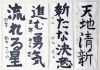 天地清新
新たな決意
進む勇気
流れる星